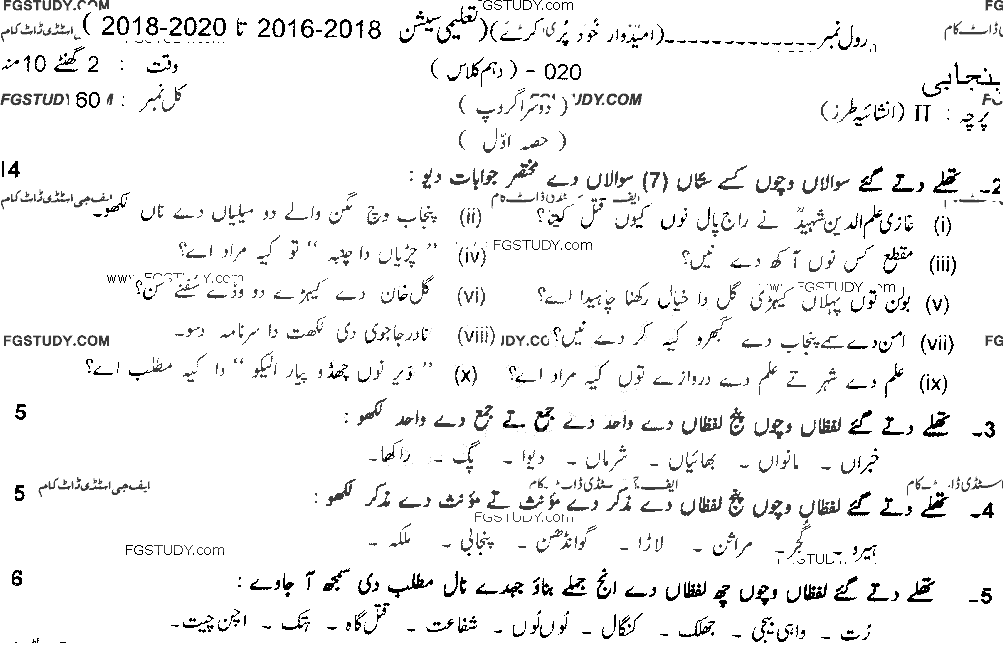 FGSTUDY.COM FGSTUDY.com FG
رول نمبر ـــــــــــــــ (امیدوار خود پُر کرے) (تعلیمی سیشن 2018-2016 تا 2020-2018)
پنجابی 020 - (دہم کلاس) وقت : 2 گھنٹے 10 منٹ
پرچہ : II (انشائیہ طرز) (دوسرا گروپ) کل نمبر : 60
(حصہ اوّل)
2ـ تھلے دتے گئے سوالاں وچوں کسے ستّاں (7) سوالاں دے مختصر جوابات دیو : 14
(i) غازی علم الدین شہیدؒ نے راج پال نوں کیوں قتل کیتا؟ (ii) پنجاب وچ لگن والے دو میلیاں دے ناں لکھو۔
(iii) مقطع کس نوں آکھ دے نیں؟ (iv) "چڑیاں دا چنبہ" تو کیہ مراد اے؟
(v) بولن توں پہلاں کیہڑی گل دا خیال رکھنا چاہیدا اے؟ (vi) گل خان دے کیہڑے دو وڈے سُفنے سن؟
(vii) امن دے سمے پنجاب دے گبھرو کیہ کر دے نیں؟ (viii) نادر جاجوی دی لکھت دا سرنامہ دسو۔
(ix) علم دے شہر تے علم دے دروازے توں کیہ مراد اے؟ (x) "ویر نوں چھڈو پیار الیکو" دا کیہ مطلب اے؟
3ـ تھلے دتے گئے لفظاں وچوں پنج لفظاں دے واحد دے جمع تے جمع دے واحد لکھو : 5
خبراں ـ مانواں ـ بھائیاں ـ شرماں ـ دیوا ـ پگ ـ راکھا۔
4ـ تھلے دتے گئے لفظاں وچوں پنج لفظاں دے مذکر دے مؤنث تے مؤنث دے مذکر لکھو : 5
ہیرو ـ گجر ـ مراثن ـ لاڑا ـ گوانڈھن ـ پنجابی ـ ملکہ ـ
5ـ تھلے دتے گئے لفظاں وچوں چھ لفظاں دے انج جملے بناؤ جہدے نال مطلب دی سمجھ آ جاوے : 6
رُت ـ واہی بیجی ـ جھلک ـ کنگال ـ لُوں لُوں ـ شفاعت ـ قتل گاہ ـ ہتک ـ اچن چیت۔